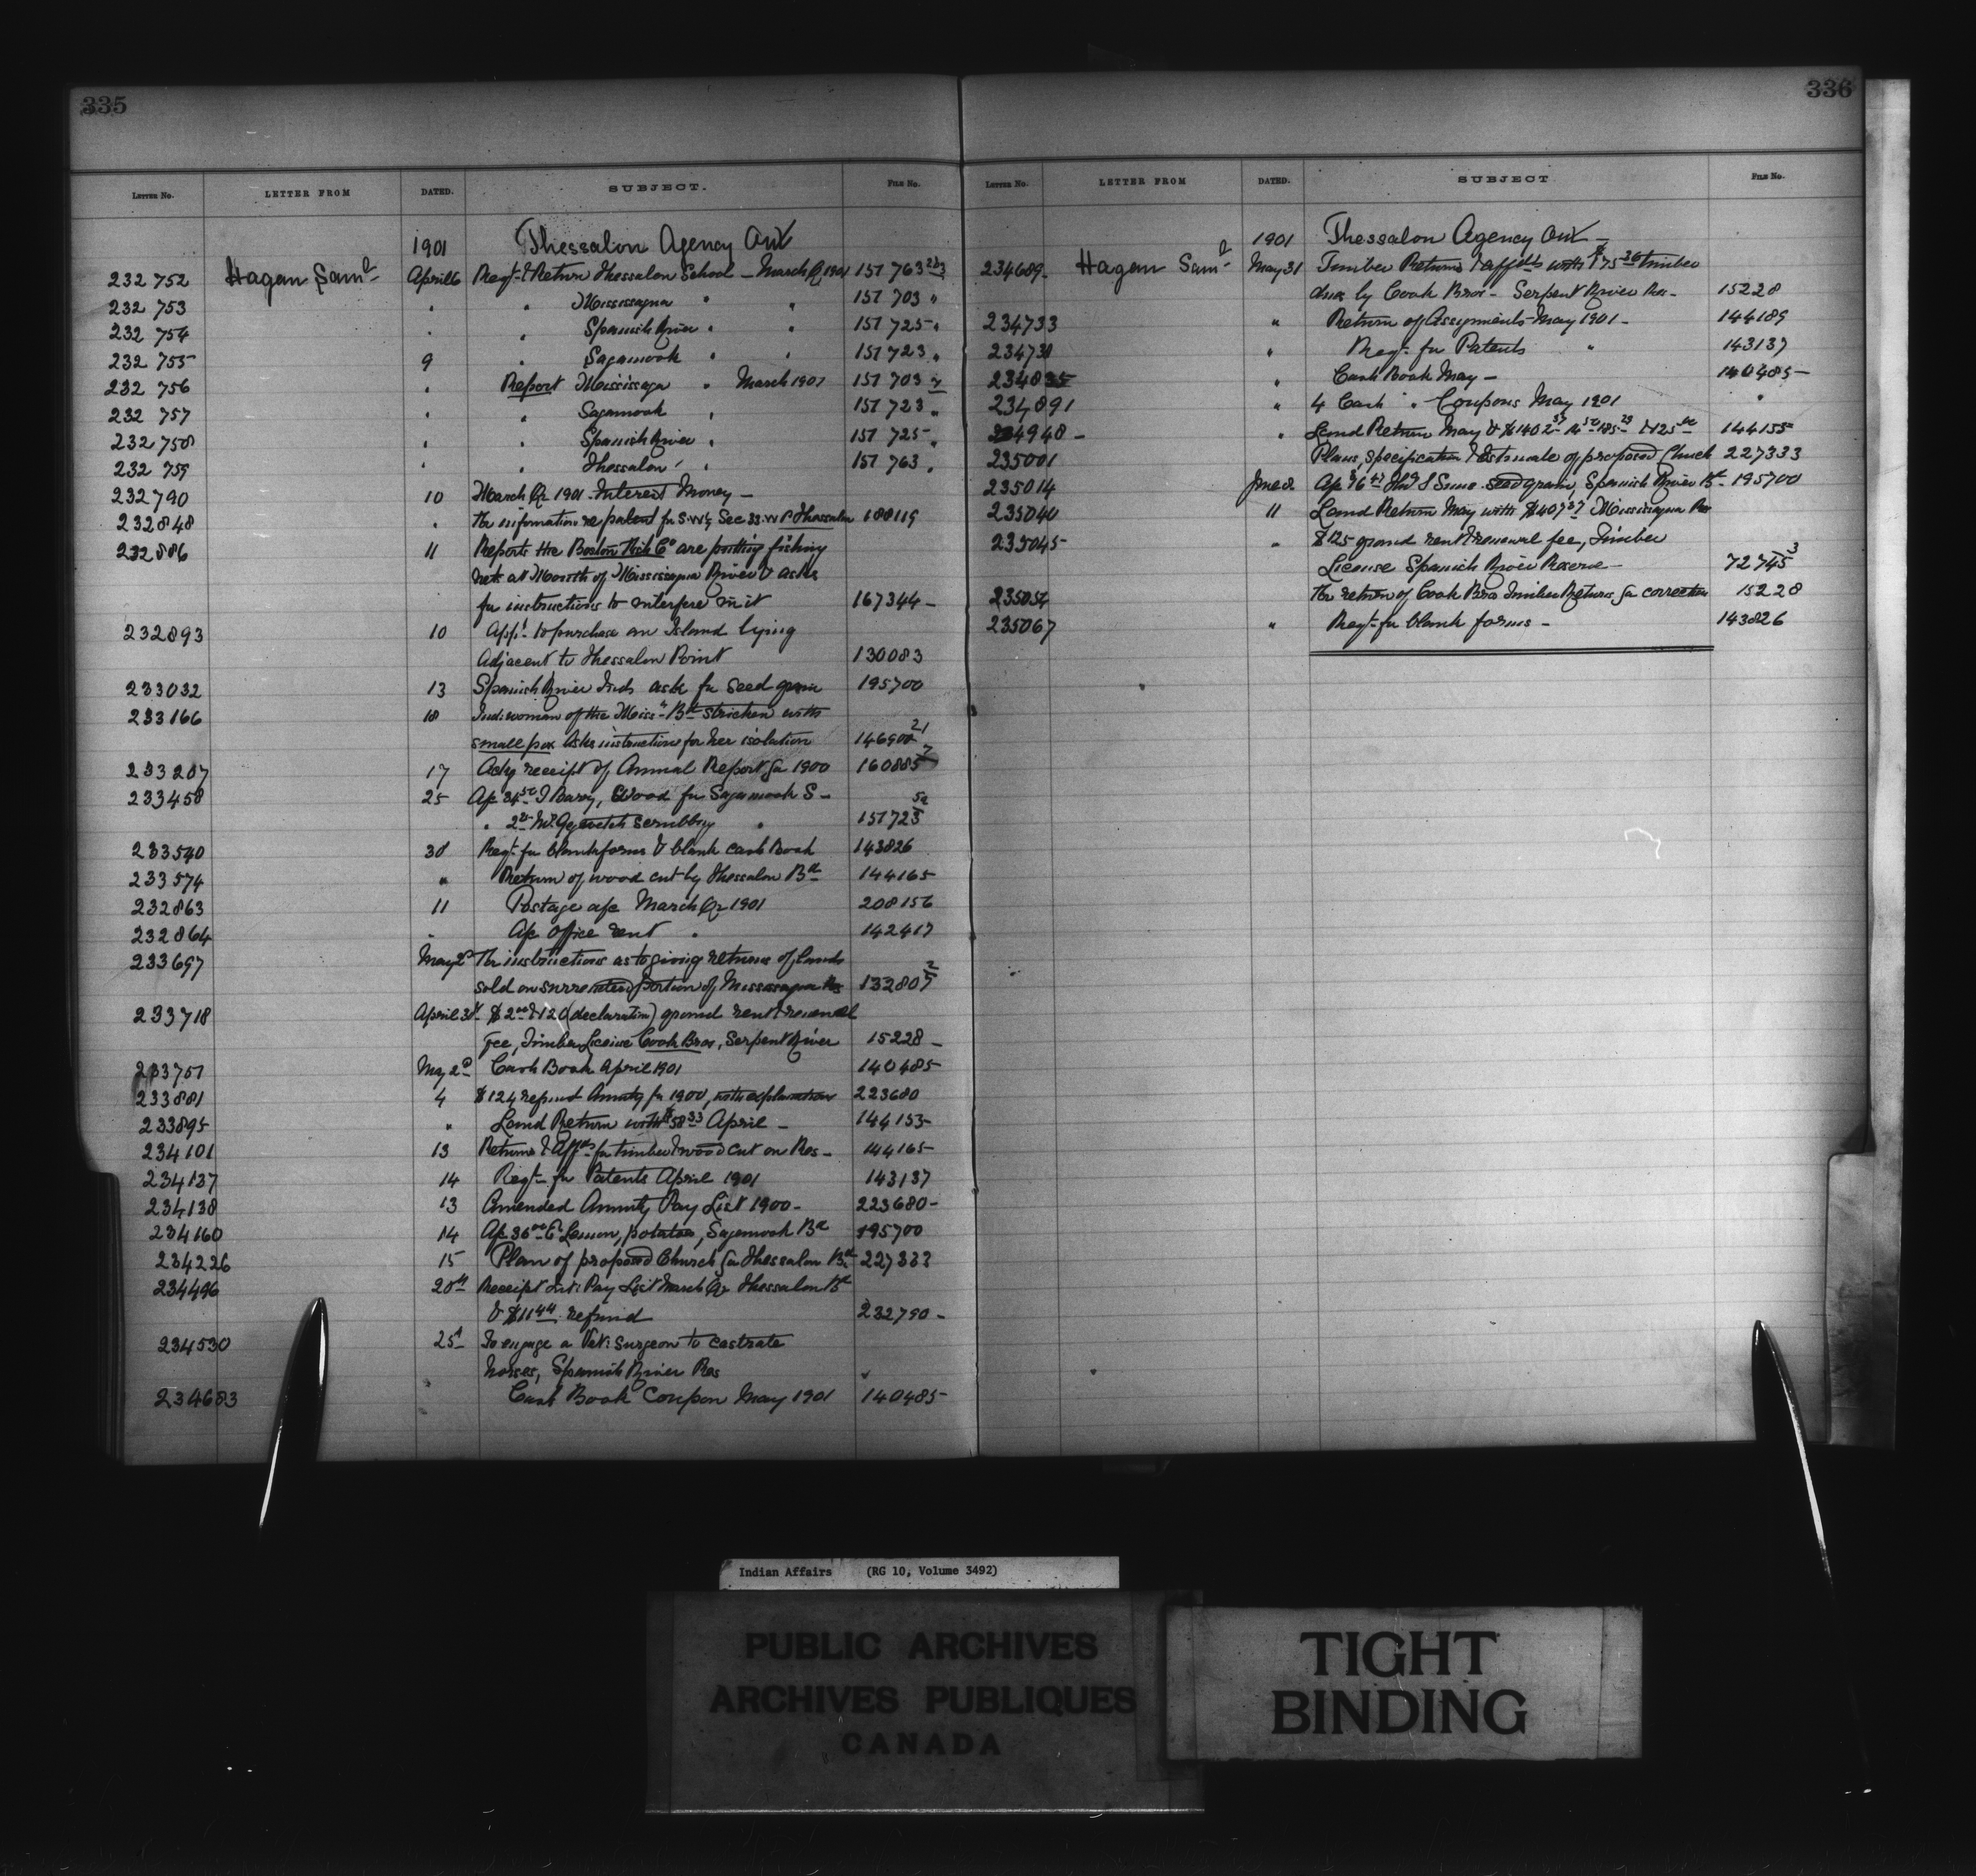 335
LETTER NO. LETTER FROM DATED. SUBJECT. FILE NO.
1901 Thessalon Agency Ont
232 752 Hagan Saml April 6 Regt & Return Thessalon School - March Qr 1901 151 763
232 753 " " Mississagua " " 151 703 "
232 754 " " Spanish River " " 151 725 "
232 755 9 " Sagamook " " 151 723 "
232 756 " Report Mississaga " March 1901 151 703
232 757 " " Sagamook " 151 723 "
232 758 " " Spanish River " 151 725 "
232 759 " " Thessalon " 151 763 "
232790 10 March Qr 1901 Interest Money -
232848 " For information re patent for S.W¼ Sec 33 W P Thessalon 188119
232886 11 Reports the Boston Fish Co are putting fishing
nets at Mouth of Mississagua River & asks
for instructions to interfere in it 167344 -
232893 10 Appl to purchase an Island lying
Adjacent to Thessalon Point 130083
233032 13 Spanish River Inds ask for Seed grain 195700
233166 18 Ind: woman of the Miss: Bd stricken with
small pox Asks instructions for her isolation 146900 21
233207 17 Ackg receipt of Annual Report for 1900 160885 7
233458 25 Ap 34 50 J Barry, Wood for Sagamook S -
" 2 scrubbing " 151723 52
233540 30 Regt for blank forms & blank Cash Book 143826
233574 " Return of wood cut by Thessalon Bd 144165
232863 11 Postage a/c March Qr 1901 208156
232864 " A/c Office rent " 142417
233697 May 2d For instructions as to giving returns of lands
sold on surrendered portion of Mississagua Res 132807 2
233718 April 30 $2 00 & 120 (declaration) ground rent & renewal
Fee, Timber License Cook Bros, Serpent River 15228 -
233751 May 2d Cash Book April 1901 140485
233881 4 $124 refund Annuity for 1900, with explanation 223680
233895 " Land Return with $58 33 April - 144155
234101 13 Returns & Affts for timber & wood cut on Res - 144165
234137 14 Regt for Patents April 1901 143137
234138 13 Amended Annuity Pay List 1900 - 223680 -
234160 14 A/c 36 00 E Lemon, potatoes, Sagamook Bd 195700
234226 15 Plan of proposed Church for Thessalon Bd 227333
234496 20th Receipt Int: Pay List March Qr Thessalon Bd
& $11 44 refund 232790 -
234530 25 To engage a Vet: Surgeon to castrate
horses, Spanish River Res "
234683 " Cash Book Coupon May 1901 140485
336
LETTER NO. LETTER FROM DATED. SUBJECT FILE NO.
1901 Thessalon Agency Ont -
234689 Hagan Saml May 31 Timber Returns & affdts with $75 26 timber
dues by Cook Bros - Serpent River Res - 15228
234733 " Return of Assignments May 1901 - 144189
234731 " Regt for Patents " 143137
234835 " Cash Book May - 140485 -
234891 " 4 Cash " Coupons May 1901 "
234948 - " Land Return May & $1402 37 14 50 185 29 & 125 00 144155
235001 Plans, specification & Estimate of proposed Church 227333
235014 June 8 seed grain, Spanish River Bd - 195700
235040 11 Land Return May with $407 27 Mississagua Res
235045 " $125 ground rent & renewal fee, Timber
License Spanish River Reserve - 72745 3
235054 For return of Cook Bros Timber Returns for correction 15228
235067 " Regt for blank forms - 143826
Indian Affairs (RG 10, Volume 3492)
PUBLIC ARCHIVES
ARCHIVES PUBLIQUES
CANADA
TIGHT
BINDING